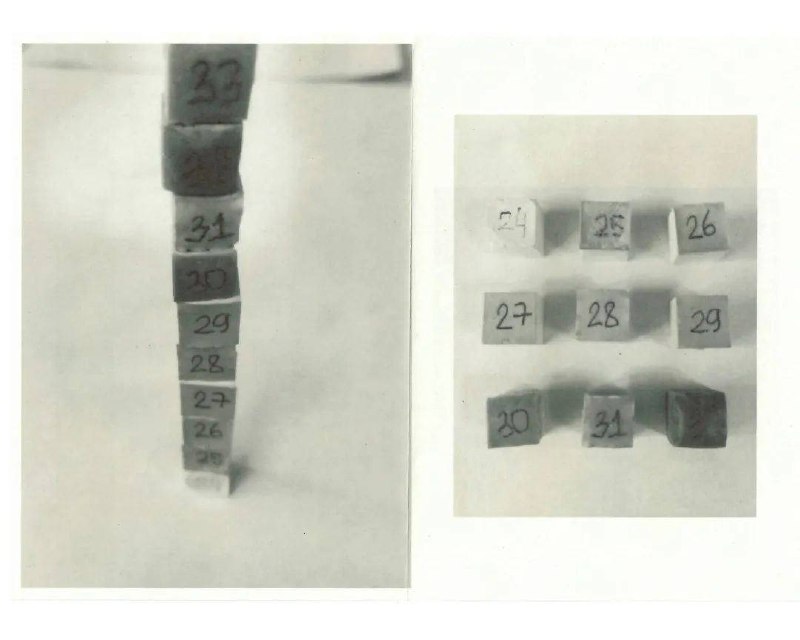 33
31
30
29
28
27
26
25
24 25 26
27 28 29
30 31